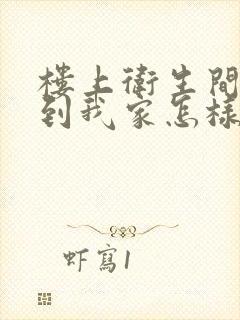 樓上衛生間
到我家怎樣
虾寫1